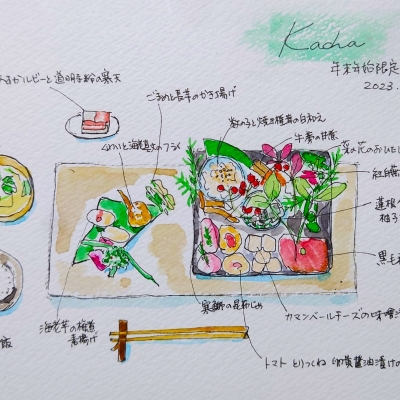 Kacha
年末年始限定
2023.
ルビーと道明寺粉の寒天
ごまめと長芋のかき揚げ
数の子と焼き椎茸の白和え
牛蒡の甘煮
菜の花のおひたし
紅白
蓮根
柚子
黒毛和
海老芋の
素揚げ
飯
寒鰤の昆布じめ
カマンベールチーズの味噌
トマト とりつくね 卵黄醤油漬け